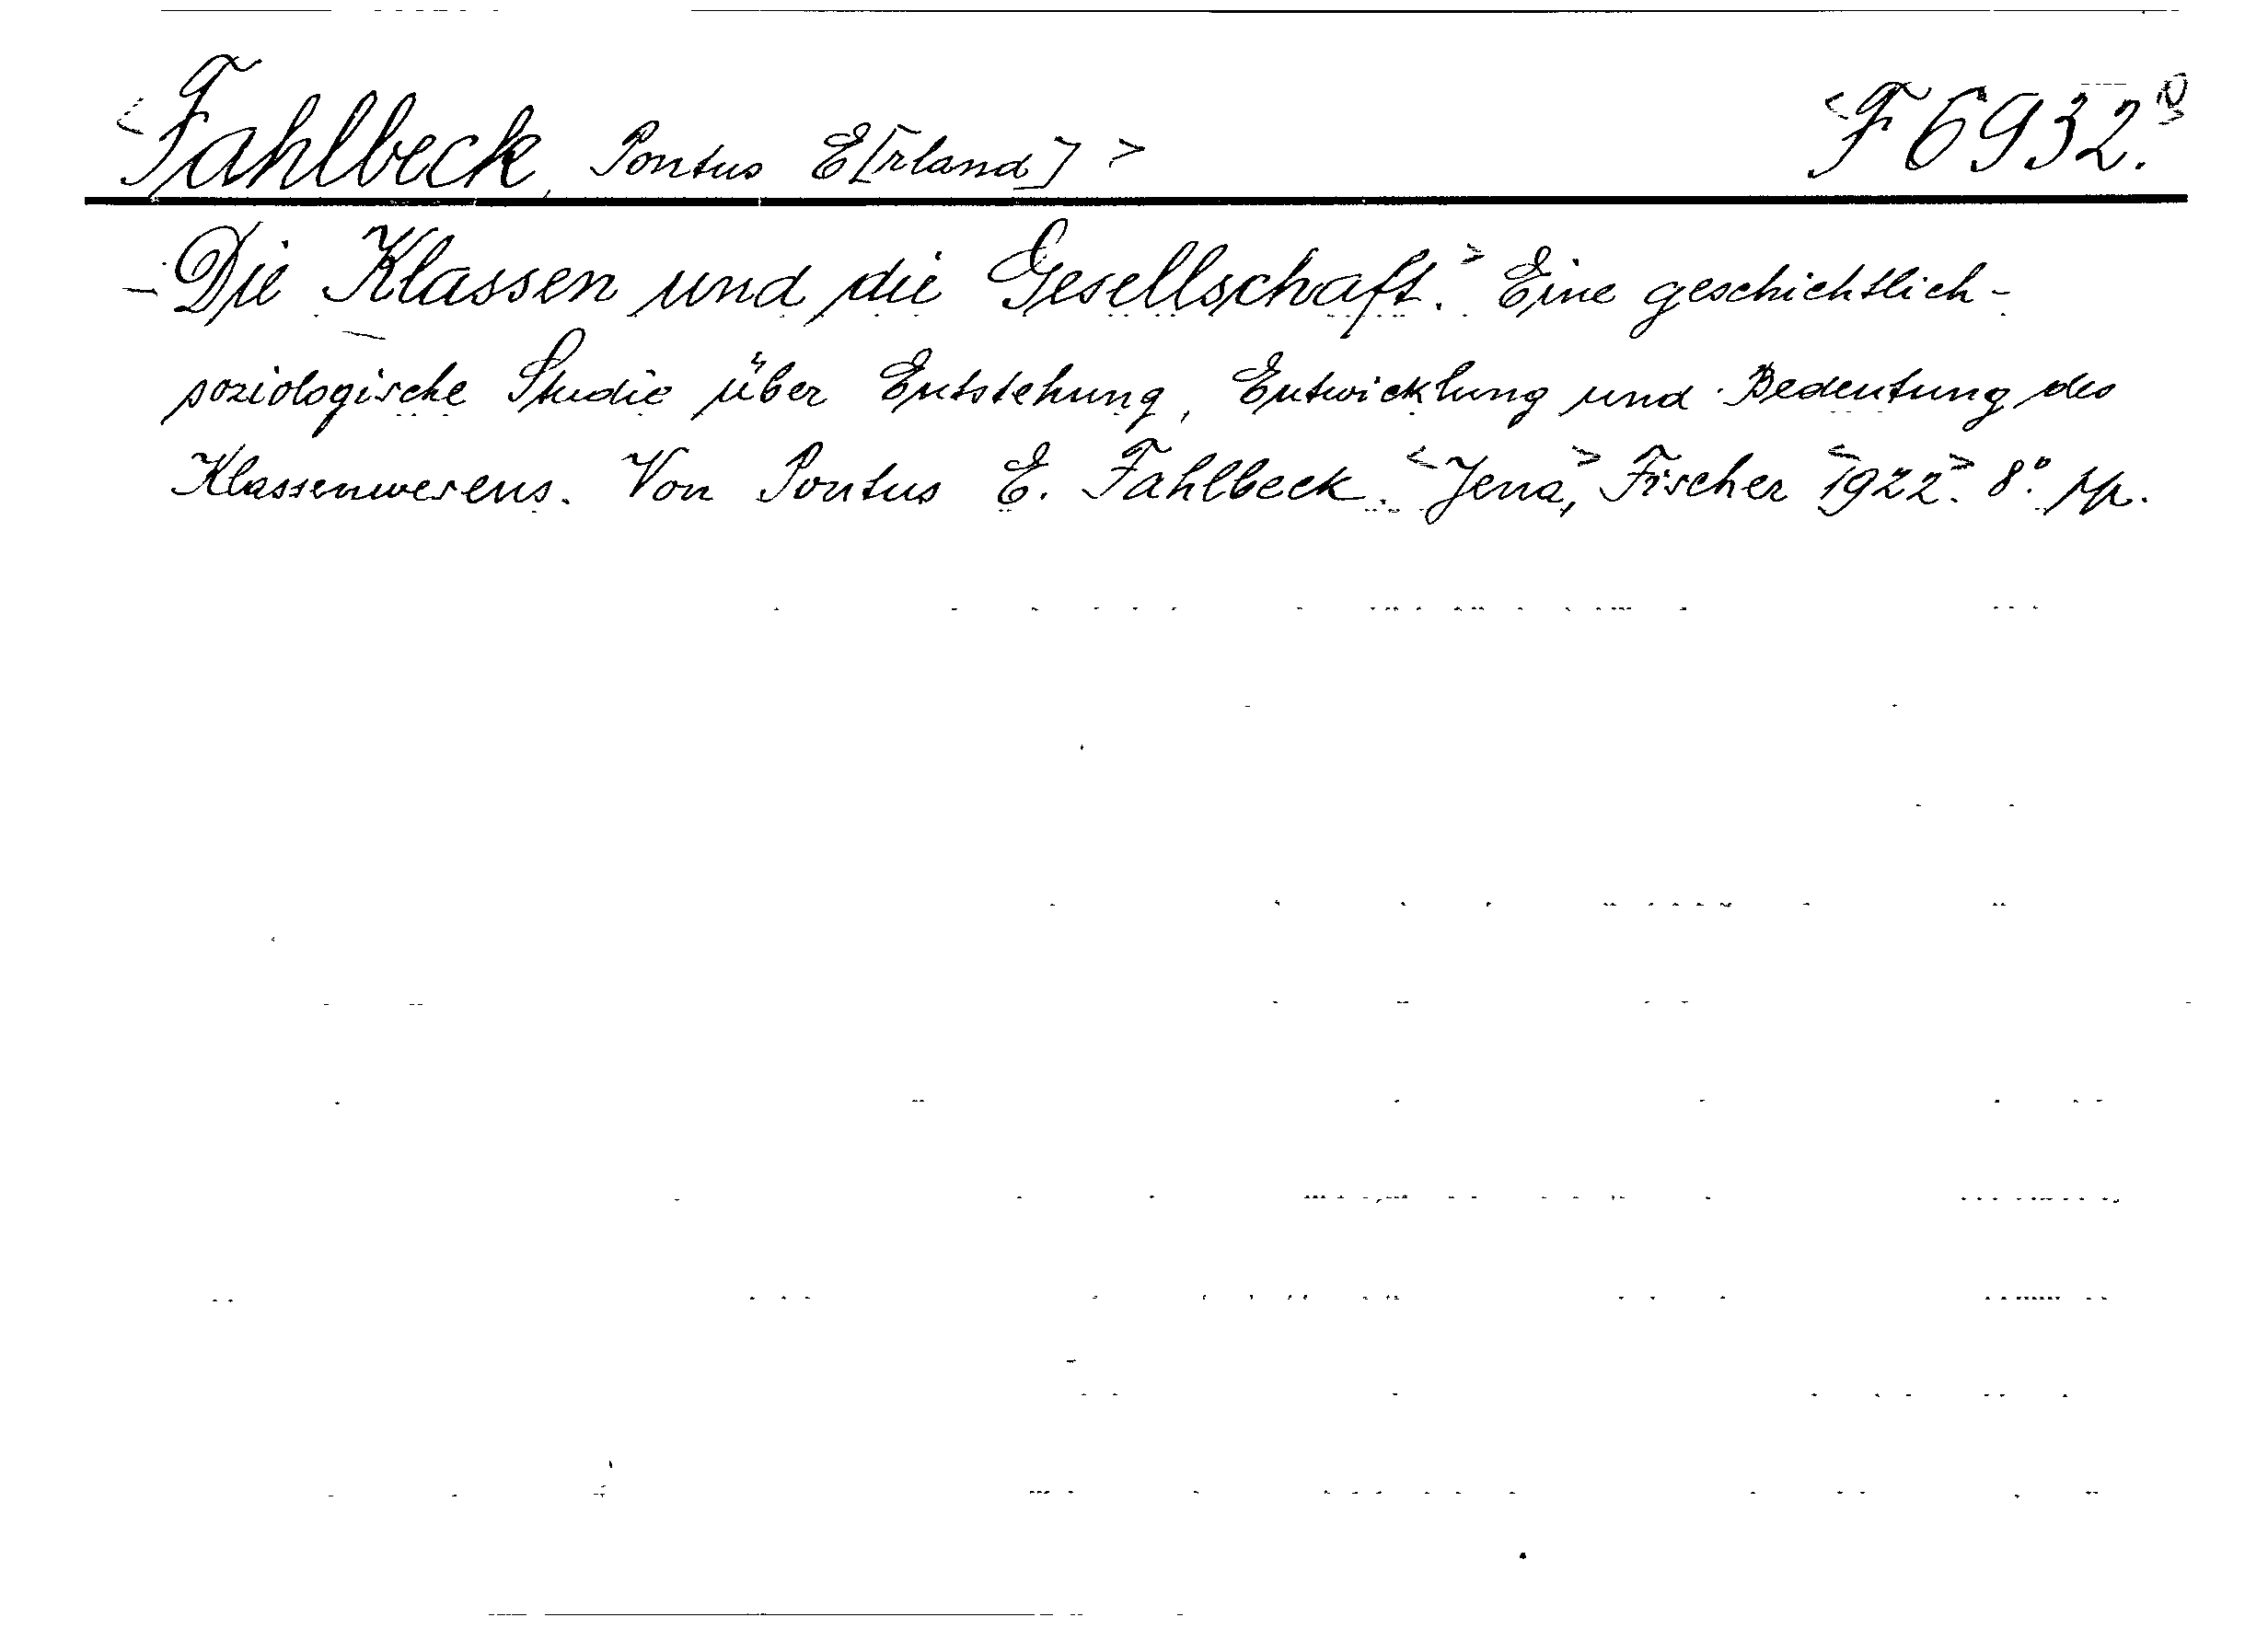 <Fahlbeck, Pontus E[rland]> <F 6932.>
Die Klassen und die Gesellschaft.> Eine geschichtlich-
soziologische Studie über Entstehung, Entwicklung und Bedeutung des
Klassenwesens. Von Pontus E. Fahlbeck. <Jena,> Fischer <1922>. 8°.